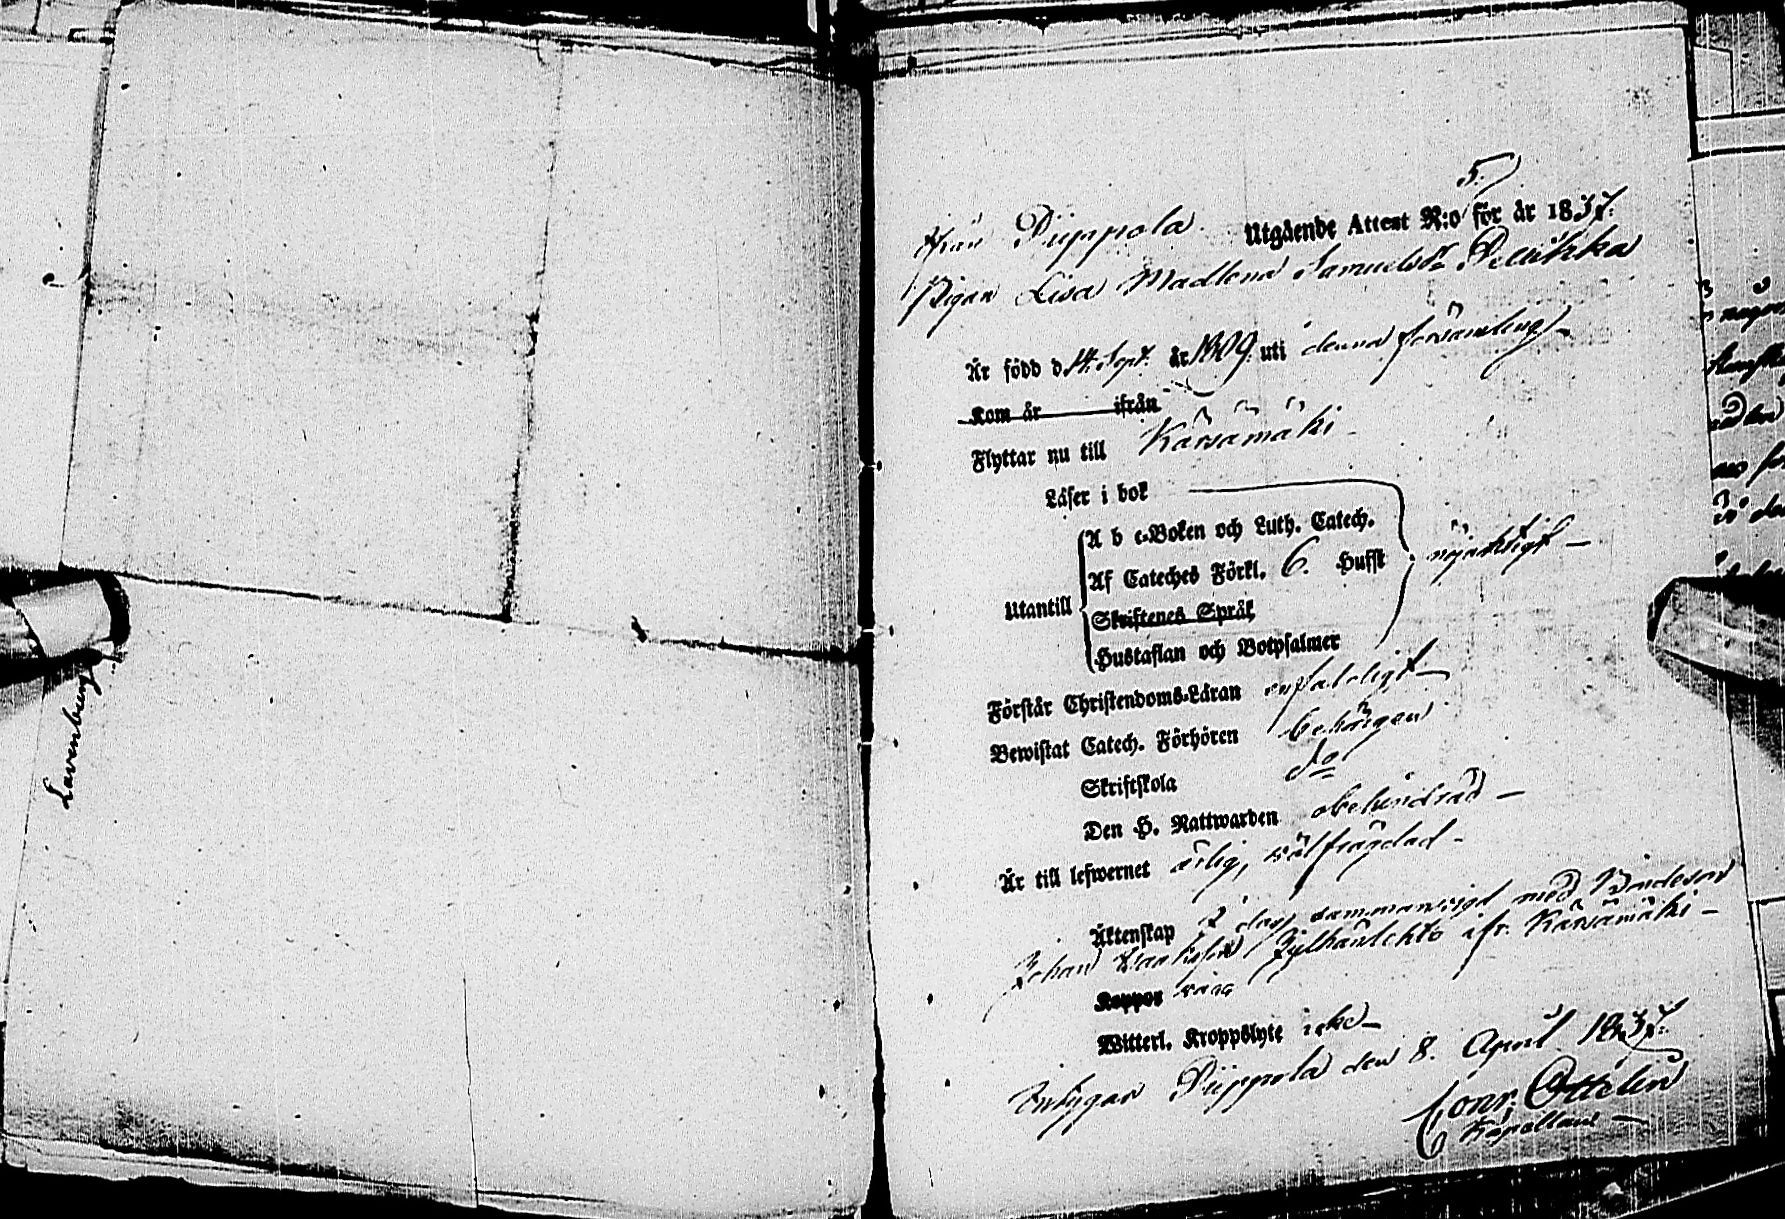 Lavenburg
5.
från Piippola. Utgående Attest N:o för år 1837.
Pigan Lisa Madlena Samuelsdr
Är född d. 14. Sept. år 1809. uti denna församling
Kom år ifrån
Flyttar nu till Kärsämäki
Läser i bok
A b c-Boken och Luth. Catech.
Af Cateches Förkl. 6. Hufst nöjaktigt
Utantill
Skriftenes Språk
Hustaflan och Botpsalmer
Förstår Christendoms-Läran enfaldigt
Bewistat Catech. Förhören behörigen
Skriftskola do
Den H. Nattwarden obehindrad
Är till lefwernet ärlig, välfrägdad
Äktenskap i dag sammanvigd med Bondeson
Johan ifr. Kärsämäki
Koppor
Witterl. Kroppslyte icke
Intygar Piippola den 8. April 1837.
Conr. Ottelin
Kapellan